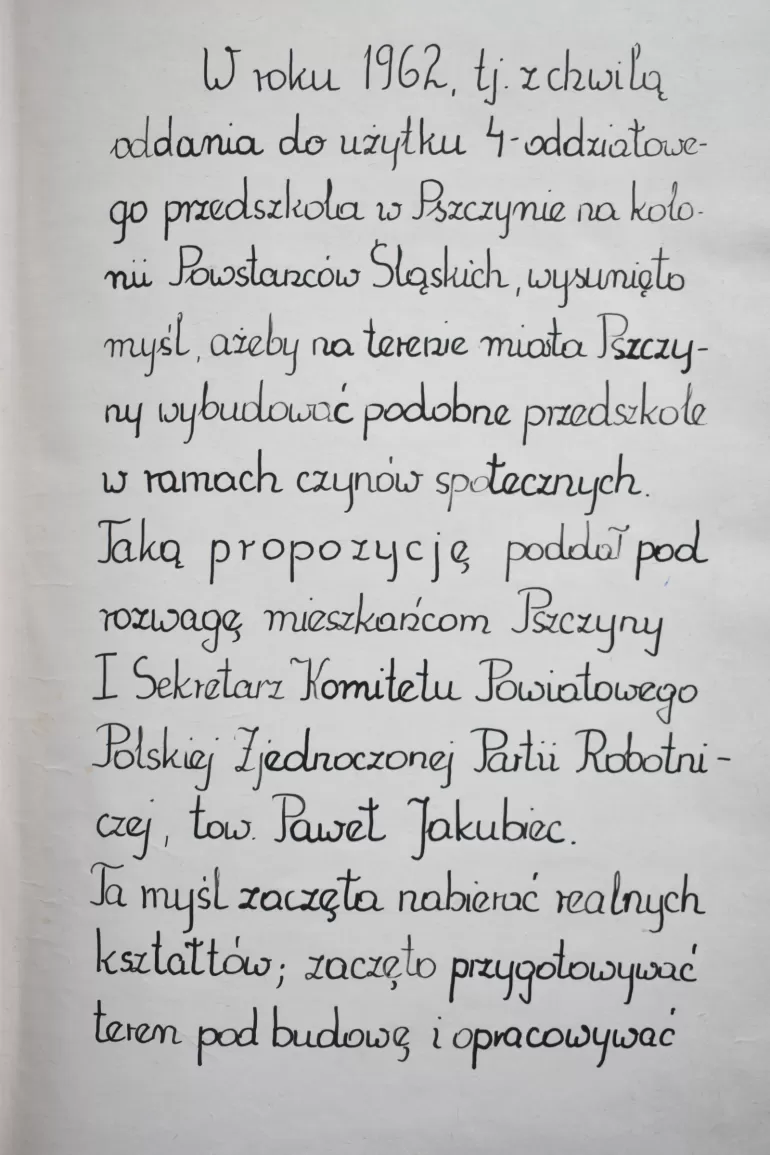 W roku 1962, tj. z chwilą
oddania do użytku 4-oddziałowe-
go przedszkola w Pszczynie na kolo-
nii Powstańców Śląskich, wysunięto
myśl, ażeby na terenie miasta Pszczy-
ny wybudować podobne przedszkole
w ramach czynów społecznych.
Taką propozycję poddał pod
rozwagę mieszkańcom Pszczyny
I Sekretarz Komitetu Powiatowego
Polskiej Zjednoczonej Partii Robotni-
czej, tow. Paweł Jakubiec.
Ta myśl zaczęła nabierać realnych
kształtów; zaczęto przygotowywać
teren pod budowę i opracowywać